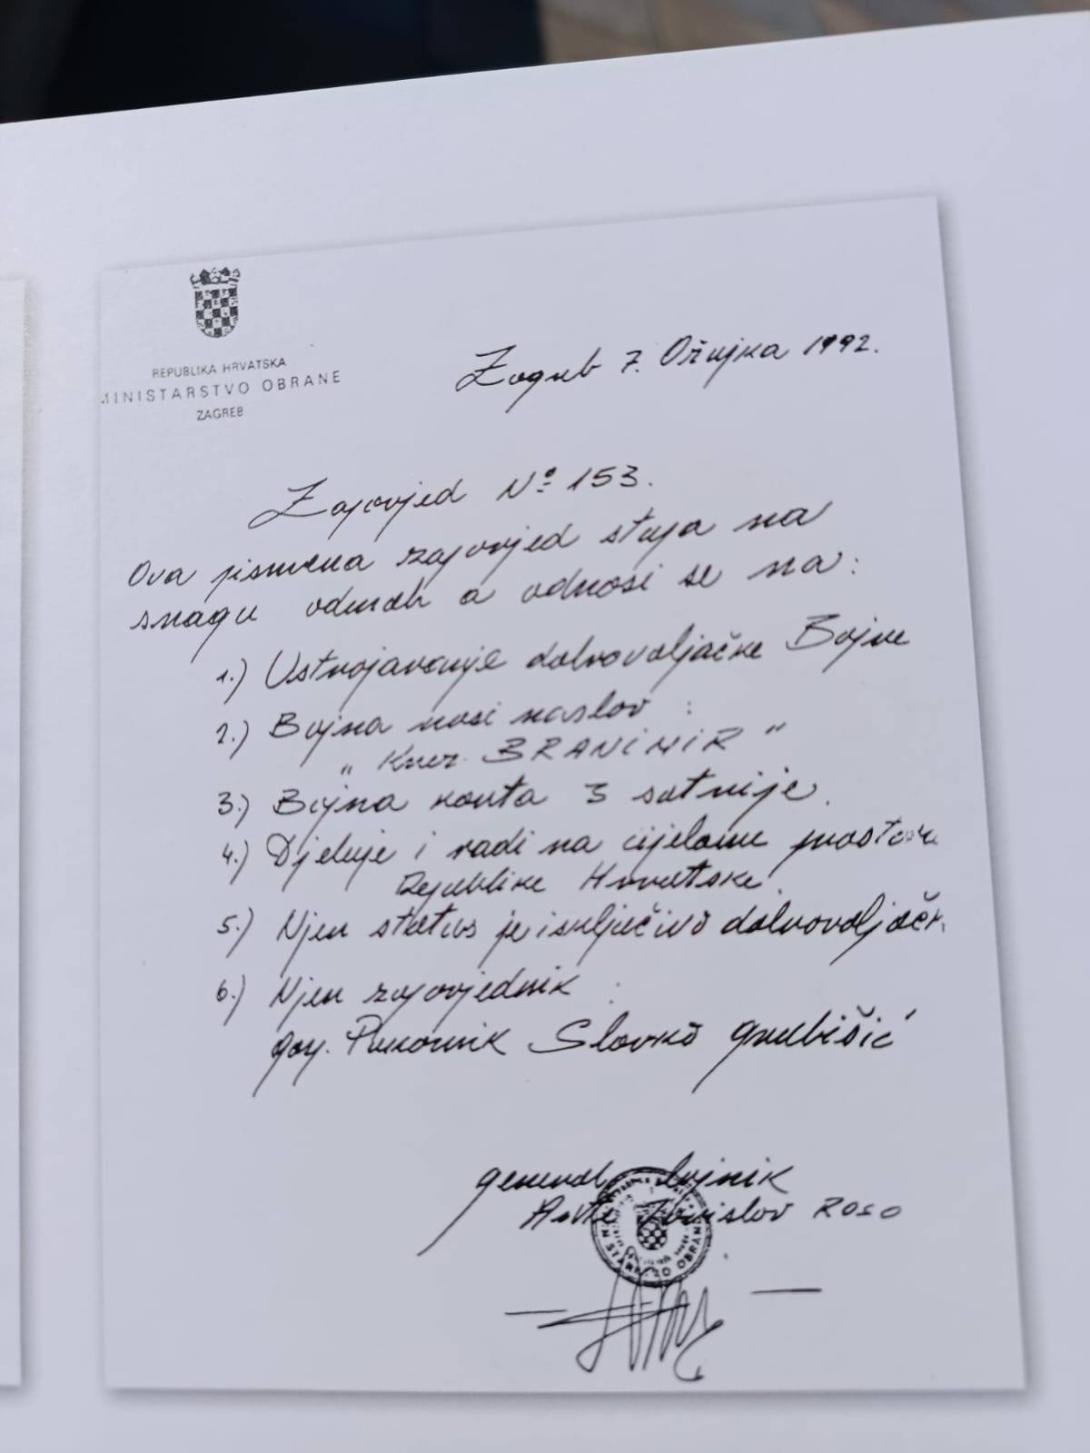 REPUBLIKA HRVATSKA
MINISTARSTVO OBRANE
ZAGREB
Zagreb 7. Ožujka 1992.
Zapovjed Nº 153.
Ova pismena zapovjed stupa na
snagu odmah a odnosi se na:
1.) Ustrojavanje dobrovoljačke Bojne
2.) Bojna nosi naslov :
„ Knez BRANIMIR "
3.) Bojna konta 3 satnije.
4.) Djeluje i radi na cijelome prostoru
Republike Hrvatske.
5.) Njen status je isključivo dobrovoljačk
6.) Njen zapovjednik :
gosp. Pukovnik Slavko Grubišić
general bojnik
Ante Tomislav ROSO